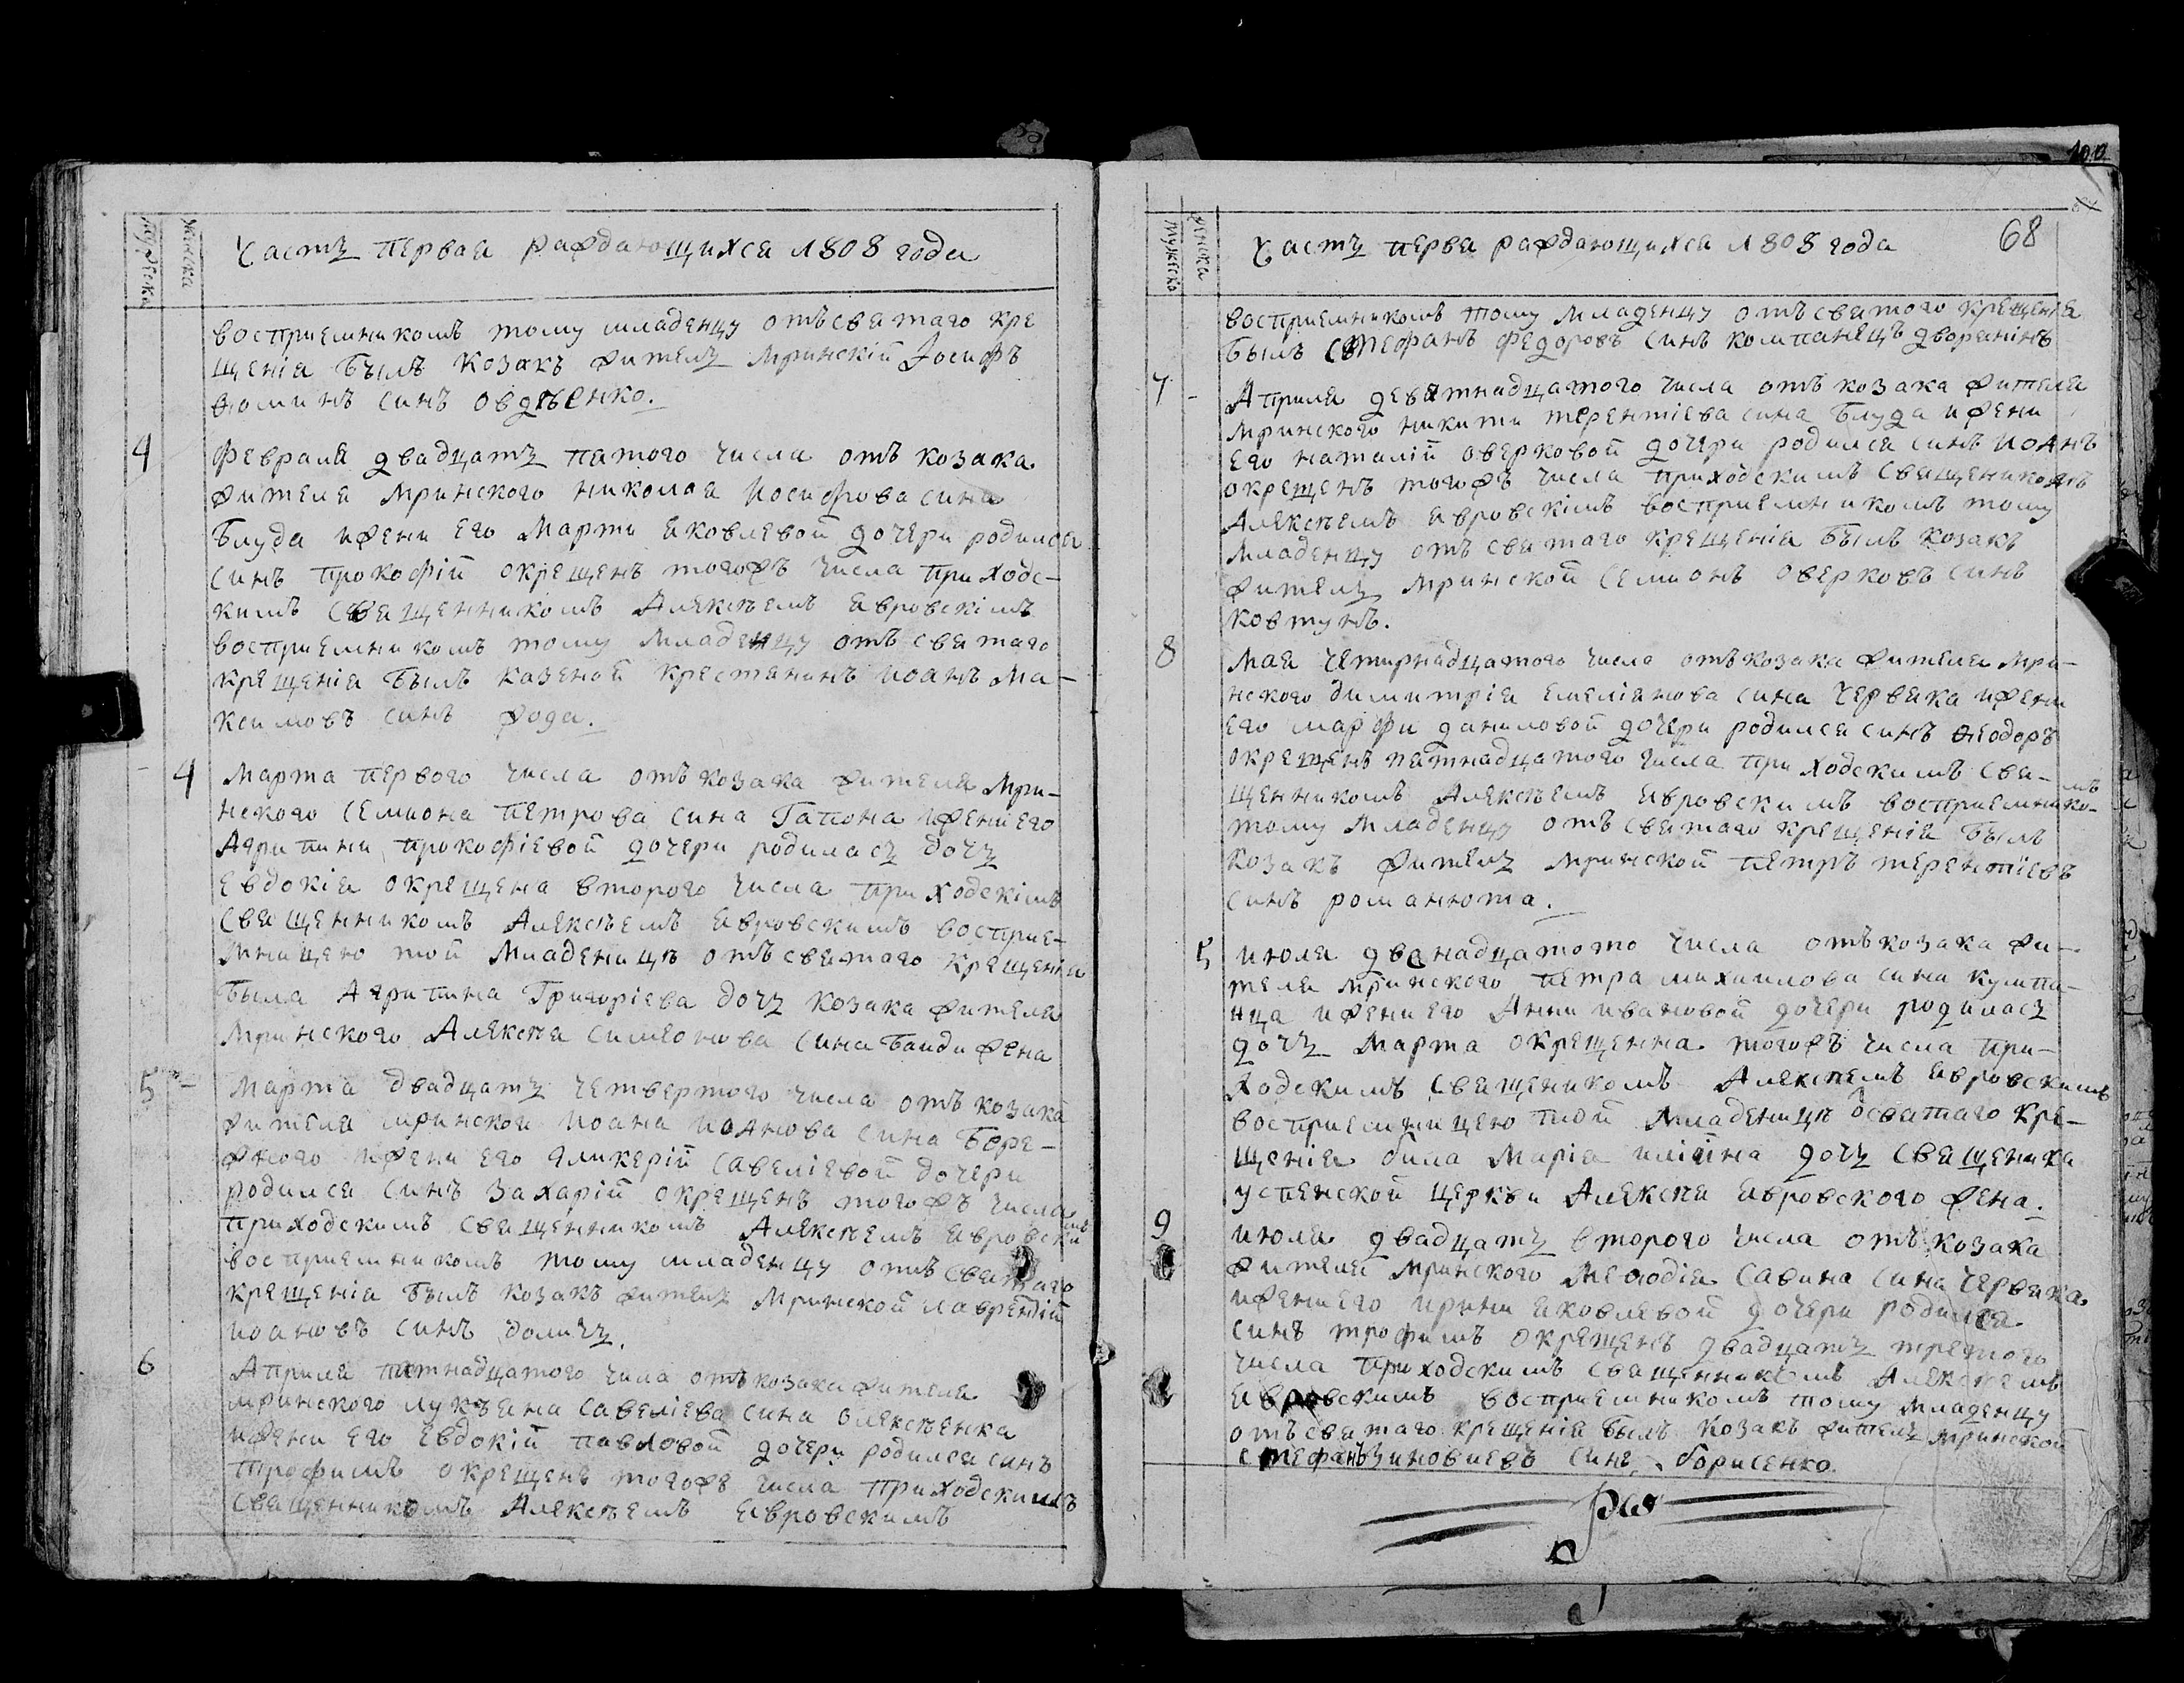 мужеска
женска
Часть первая раждающихся 1808 года
восприемникомъ тому младенцу отъ святаго кре
щенія былъ козакъ житель Мринскій Іосифъ
Ѳоминъ синъ Овдѣенко.
4
Февраля двадцать пятого числа отъ козака
жителя Мринского Николая Иосифова сина
Блуда и жени его Марти Яковлевой дочери родился
синъ Прокофій окрещенъ тогожъ числа приходс-
кимъ священникомъ Алексѣемъ Явровскімъ
восприемникомъ тому младенцу отъ святаго
крещенія былъ казеной крестянинъ Иоанъ Ма-
ксимовъ синъ Жода.
4
Марта первого числа отъ козака жителя Мри-
нского Семиона Петрова сина Гапона и жени его
Агрипини Прокофіевой дочери родилась дочь
Евдокія окрещена второго числа приходскімъ
священникомъ Алексѣемъ Явровскимъ восприе-
мницею той младеницѣ отъ святаго крещенія
была Агрипина Григоріева дочь козака жителя
Мринского Алексѣя Симеонова сина Баиди жена
5
Марта двадцать четвертого числа отъ козака
жителя мринской Иоана Иоанова сина Боре-
жного и жени его Гликерій Савеліевой дочери
родился синъ Захарій окрещенъ тогожъ числа
приходскимъ священникомъ Алексѣемъ Явровски
мъ
восприемникомъ тому младенцу отъ святаго
крещенія былъ козакъ житель Мринской Лаврентій
Иоановъ синъ Доличъ.
6
Априля пятнадцатого числа отъ козака жителя
мринского Лукъяна Савеліева сина Олексѣенка
и жени его Евдокій Павловой дочери родился синъ
Трофимъ окрещенъ тогожъ числа приходскимъ
священникомъ Алексѣемъ Явровскимъ
мужеско
женска
Часть перва раждающихся 1808 года
68
восприемникомъ тому младенцу отъ святого крещенія
былъ Стефанъ Федоровъ синъ Компанецъ дворянинъ
7
Априля девятнадцатого числа отъ козака жителя
Мринского Никити Терентіева сина Блуда и жени
его Наталій Оверковой дочери родился синъ Иоанъ
окрещенъ тогожъ числа приходскимъ священикомъ
Алексѣемъ Явровскімъ восприемникомъ тому
младенцу отъ святаго крещенія былъ козакъ
житель Мринской Семионъ Оверковъ синъ
Ковтунъ.
8
Мая четирнадцатого числа отъ козака жителя Мри-
нского Димитрія Емеліанова сина Червяка и жени
его Марфи Даниловой дочери родился синъ Ѳеодоръ
окрещенъ пятнадцатого числа приходскимъ свя-
щенникомъ Алексѣемъ Явровскимъ восприемнико-
мъ
тому младенцу отъ святаго крещенія былъ
козакъ житель Мринской Петръ Терентіевъ
синъ Романюта.
5
Июля двенадцатото числа отъ козака жи-
теля Мринского Петра Михаилова сина Кумпа-
нца и жени его Анни Ивановой дочери родилась
дочь Марта окрещенна тогожъ числа при-
ходскимъ священикомъ Алексѣемъ Явровскимъ
восприемницею той младеницѣ ѿ святаго кре-
щенія била Марія Иліина дочь священика
успенской церкви Алексѣя Явровского жена.
9
Июля двадцать второго числа отъ козака
жителя Мринского Меѳодія Савина сина Червяка
и жени его Ирини Яковлевой дочери родился
синъ Трофимъ окрещенъ двадцать третого
числа приходскимъ священникомъ Алексѣемъ
Явровскимъ восприемникомъ тому младенцу
отъ святаго крещенія былъ козакъ житель Мринской
Стефанъ Зиновиевъ синъ Борисенко.